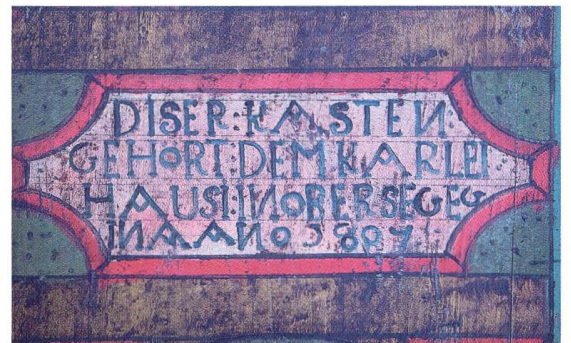 DISER:KASTEN:
GEHÖRT:DEM KARLPI
HAUS:INOBERSEGEG
INAANO 3809